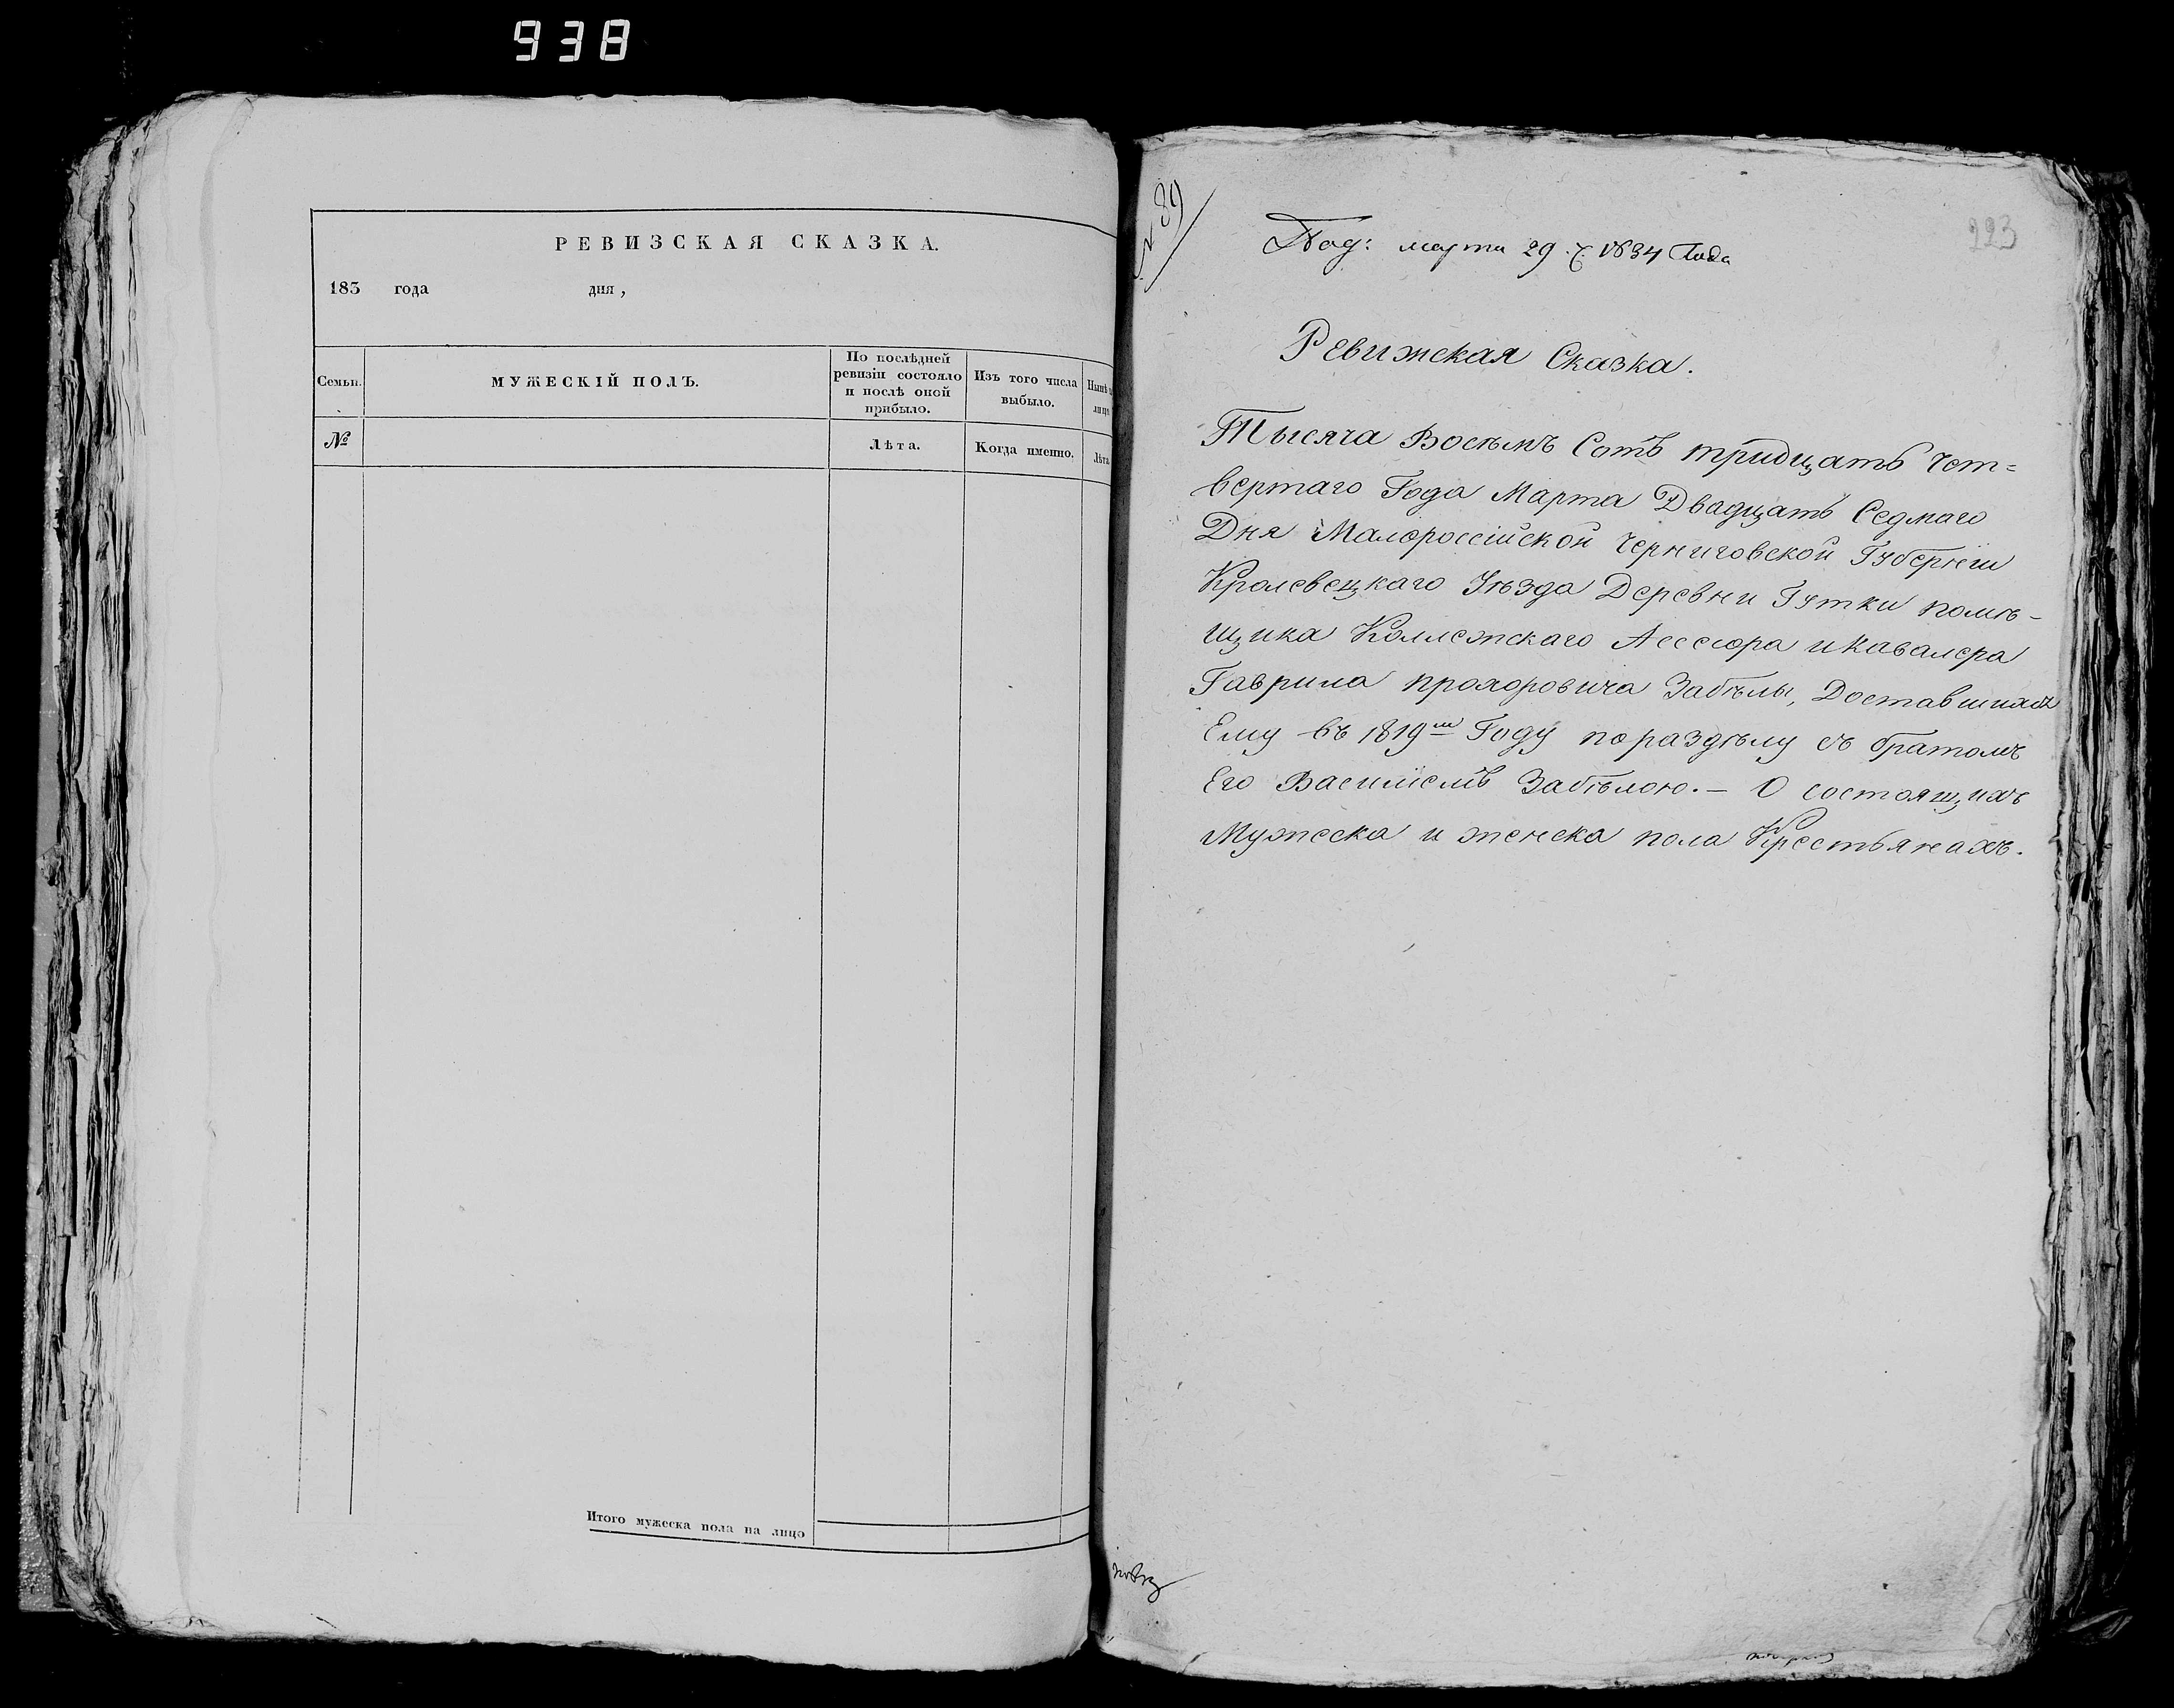 938
РЕВИЗСКАЯ СКАЗКА.
183 года дня ,
Семьи.
МУЖЕСКІЙ ПОЛЪ.
По послѣдней
ревизіи состояло
и послѣ оной
прибыло.
Изъ того числа
выбыло.
Нынѣ
лицо
№
Лѣта.
Когда именно.
Лѣта
Итого мужеска пола на лицо
№ 89
223
Под: марта 29. ч. 1834 Года
Ревижская Сказка.
Тысяча Восѣмъ Сотъ тридцать Чет=
вертаго Года Марта Двадцать Седмаго
Дня Малороссійской Черниговской Губерніи
Кролевецкаго Уѣзда Деревни Гутки помѣ-
щика Колежскаго Ассесора и Кавалера
Гаврила прохоровича Забѣлы, Доставшихся
Ему въ 1819м Году по раздѣлу съ братомъ
Его Василіемъ Забѣлою. — О состоящихъ
Мужеска и женска пола Крестьянахъ.